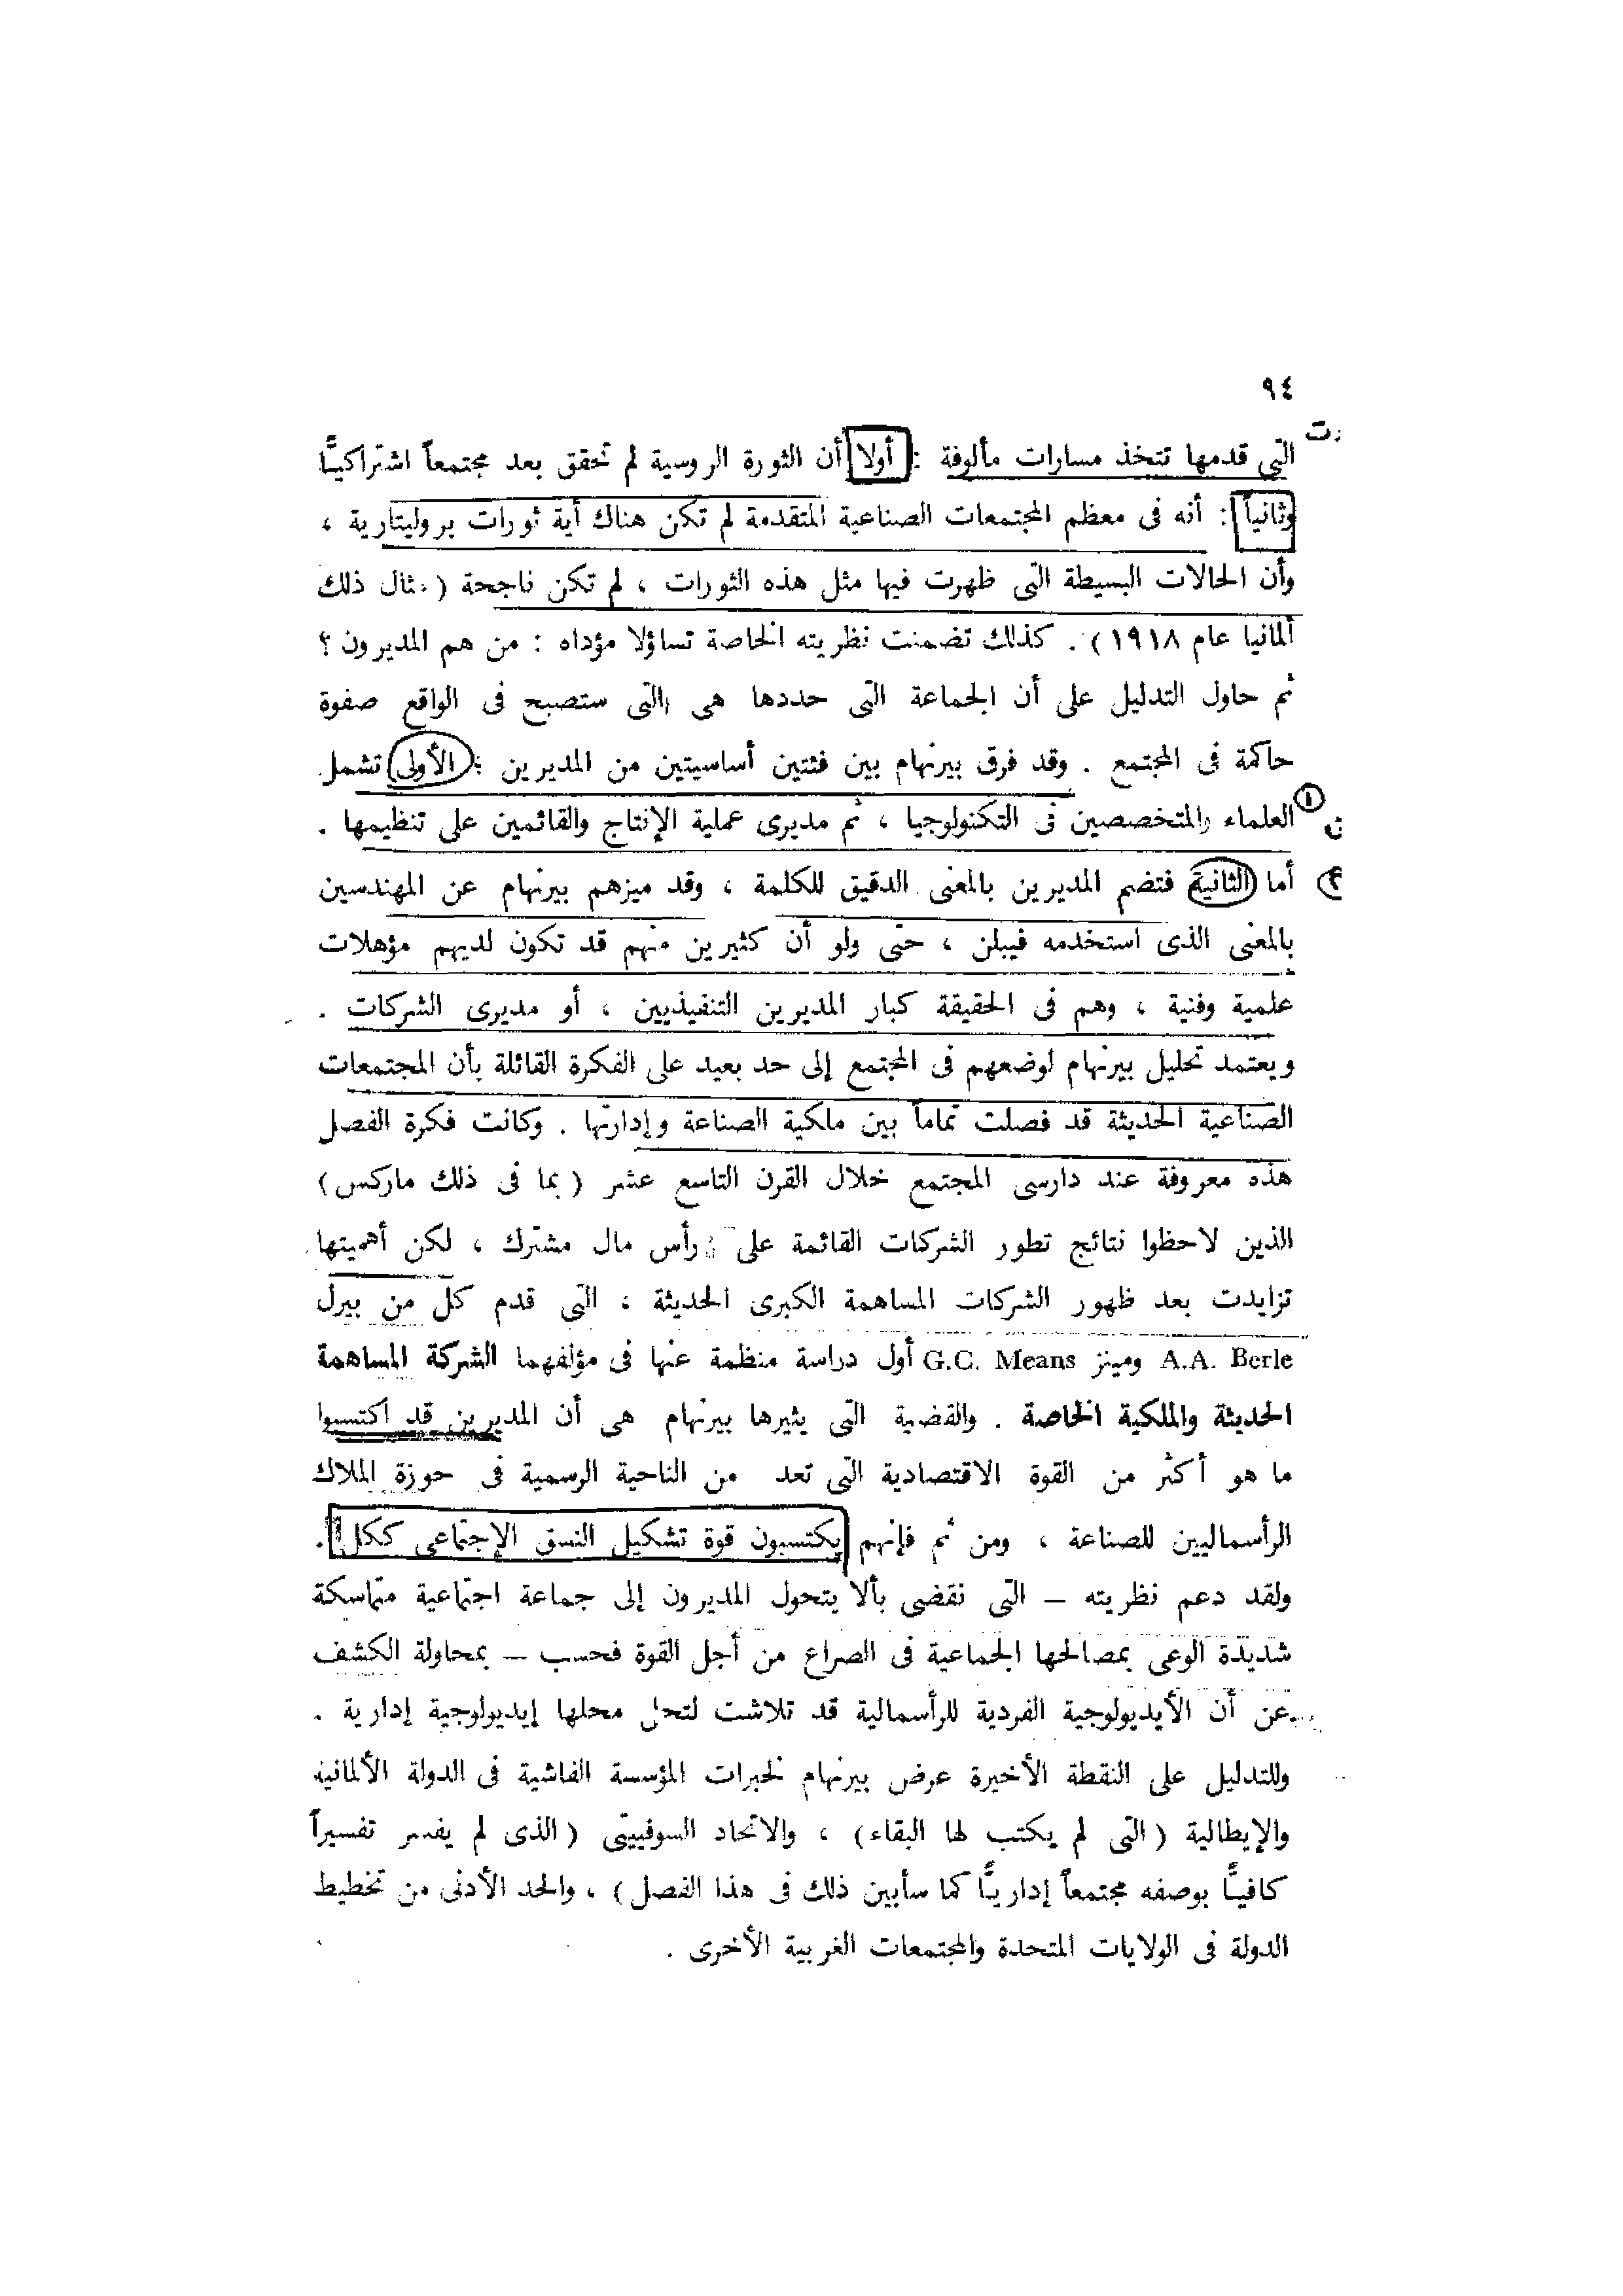 ٩٤
التى قدمها تتخذ مسارات مألوفة : أولا أن الثورة الروسية لم تحقق بعد مجتمعاً اشتراكيًّا
وثانياً : أنه فى معظم المجتمعات الصناعية المتقدمة لم تكن هناك أية ثورات بروليتارية ،
وأن الحالات البسيطة التى ظهرت فيها مثل هذه الثورات ، لم تكن ناجحة ( مثال ذلك
ألمانيا عام ١٩١٨ ) . كذلك تضمنت نظريته الخاصة تساؤلا مؤداه : من هم المديرون ؟
ثم حاول التدليل على أن الجماعة التى حددها هى التى ستصبح فى الواقع صفوة
حاكمة فى المجتمع . وقد فرق بيرنهام بين فئتين أساسيتين من المديرين : الأولى تشمل
العلماء والمتخصصين فى التكنولوجيا ، ثم مديرى عملية الإنتاج والقائمين على تنظيمها .
أما الثانية فتضم المديرين بالمعنى الدقيق للكلمة ، وقد ميزهم بيرنهام عن المهندسين
بالمعنى الذى استخدمه فيبلن ، حتى ولو أن كثيرين منهم قد تكون لديهم مؤهلات
علمية وفنية ، وهم فى الحقيقة كبار المديرين التنفيذيين ، أو مديرى الشركات .
ويعتمد تحليل بيرنهام لوضعهم فى المجتمع إلى حد بعيد على الفكرة القائلة بأن المجتمعات
الصناعية الحديثة قد فصلت تماماً بين ملكية الصناعة وإدارتها . وكانت فكرة الفصل
هذه معروفة عند دارسى المجتمع خلال القرن التاسع عشر ( بما فى ذلك ماركس )
الذين لاحظوا نتائج تطور الشركات القائمة على رأس مال مشترك ، لكن أهميتها
تزايدت بعد ظهور الشركات المساهمة الكبرى الحديثة ، التى قدم كل من بيرل
A.A. Berle ومينز G.C. Means أول دراسة منظمة عنها فى مؤلفهما الشركة المساهمة
الحديثة والملكية الخاصة . والقضية التى يثيرها بيرنهام هى أن المديرين قد اكتسبوا
ما هو أكثر من القوة الاقتصادية التى تعد من الناحية الرسمية فى حوزة الملاك
الرأسماليين للصناعة ، ومن ثم فإنهم يكتسبون قوة تشكيل النسق الإجتماعى ككل .
ولقد دعم نظريته – التى نقضى بألا يتحول المديرون إلى جماعة اجتماعية متماسكة
شديدة الوعى بمصالحها الجماعية فى الصراع من أجل القوة فحسب – بمحاولة الكشف
عن أن الأيديولوجية الفردية للرأسمالية قد تلاشت لتحل محلها إيديولوجية إدارية .
وللتدليل على النقطة الأخيرة عرض بيرنهام لخبرات المؤسسة الفاشية فى الدولة الألمانية
والإيطالية ( التى لم يكتب لها البقاء ) ، والاتحاد السوفييتى ( الذى لم يفسر تفسيراً
كافيًّا بوصفه مجتمعاً إداريًّا كما سأبين ذلك فى هذا الفصل ) ، والحد الأدنى من تخطيط
الدولة فى الولايات المتحدة والمجتمعات الغربية الأخرى .